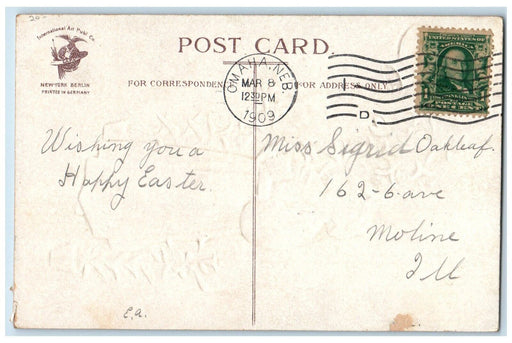 20-
International Art Publ. Co.
NEW-YORK BERLIN
PRINTED IN GERMANY
POST CARD.
FOR CORRESPONDENCE
FOR ADDRESS ONLY
OMAHA, NEB.
MAR 8
12 30 PM
1909
D.
Wishing you a
Happy Easter.
E.A.
Miss Sigrid Oakleaf.
162-6-ave
Moline
Ill